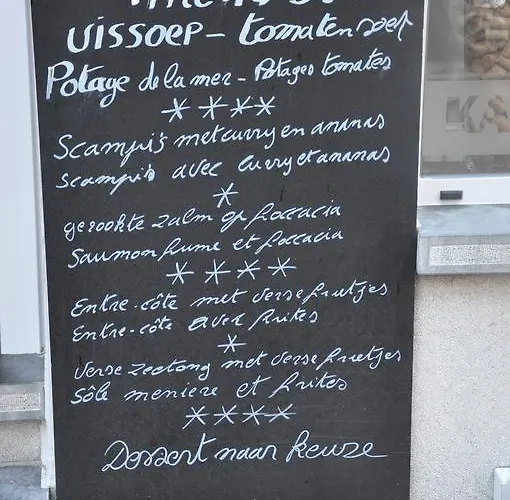 VISSOEP - tomatensoep
Potage de la mer - Potages tomates
****
Scampi's met curry en ananas
Scampi's avec curry et ananas
*
gerookte zalm op foccacia
Saumon fume et foccacia
****
Entre-côte met verse frietjes
Entre-côte avec frites
*
Verse zeetong met verse frietjes
Sôle meniere et frites
****
Dessert naar keuze